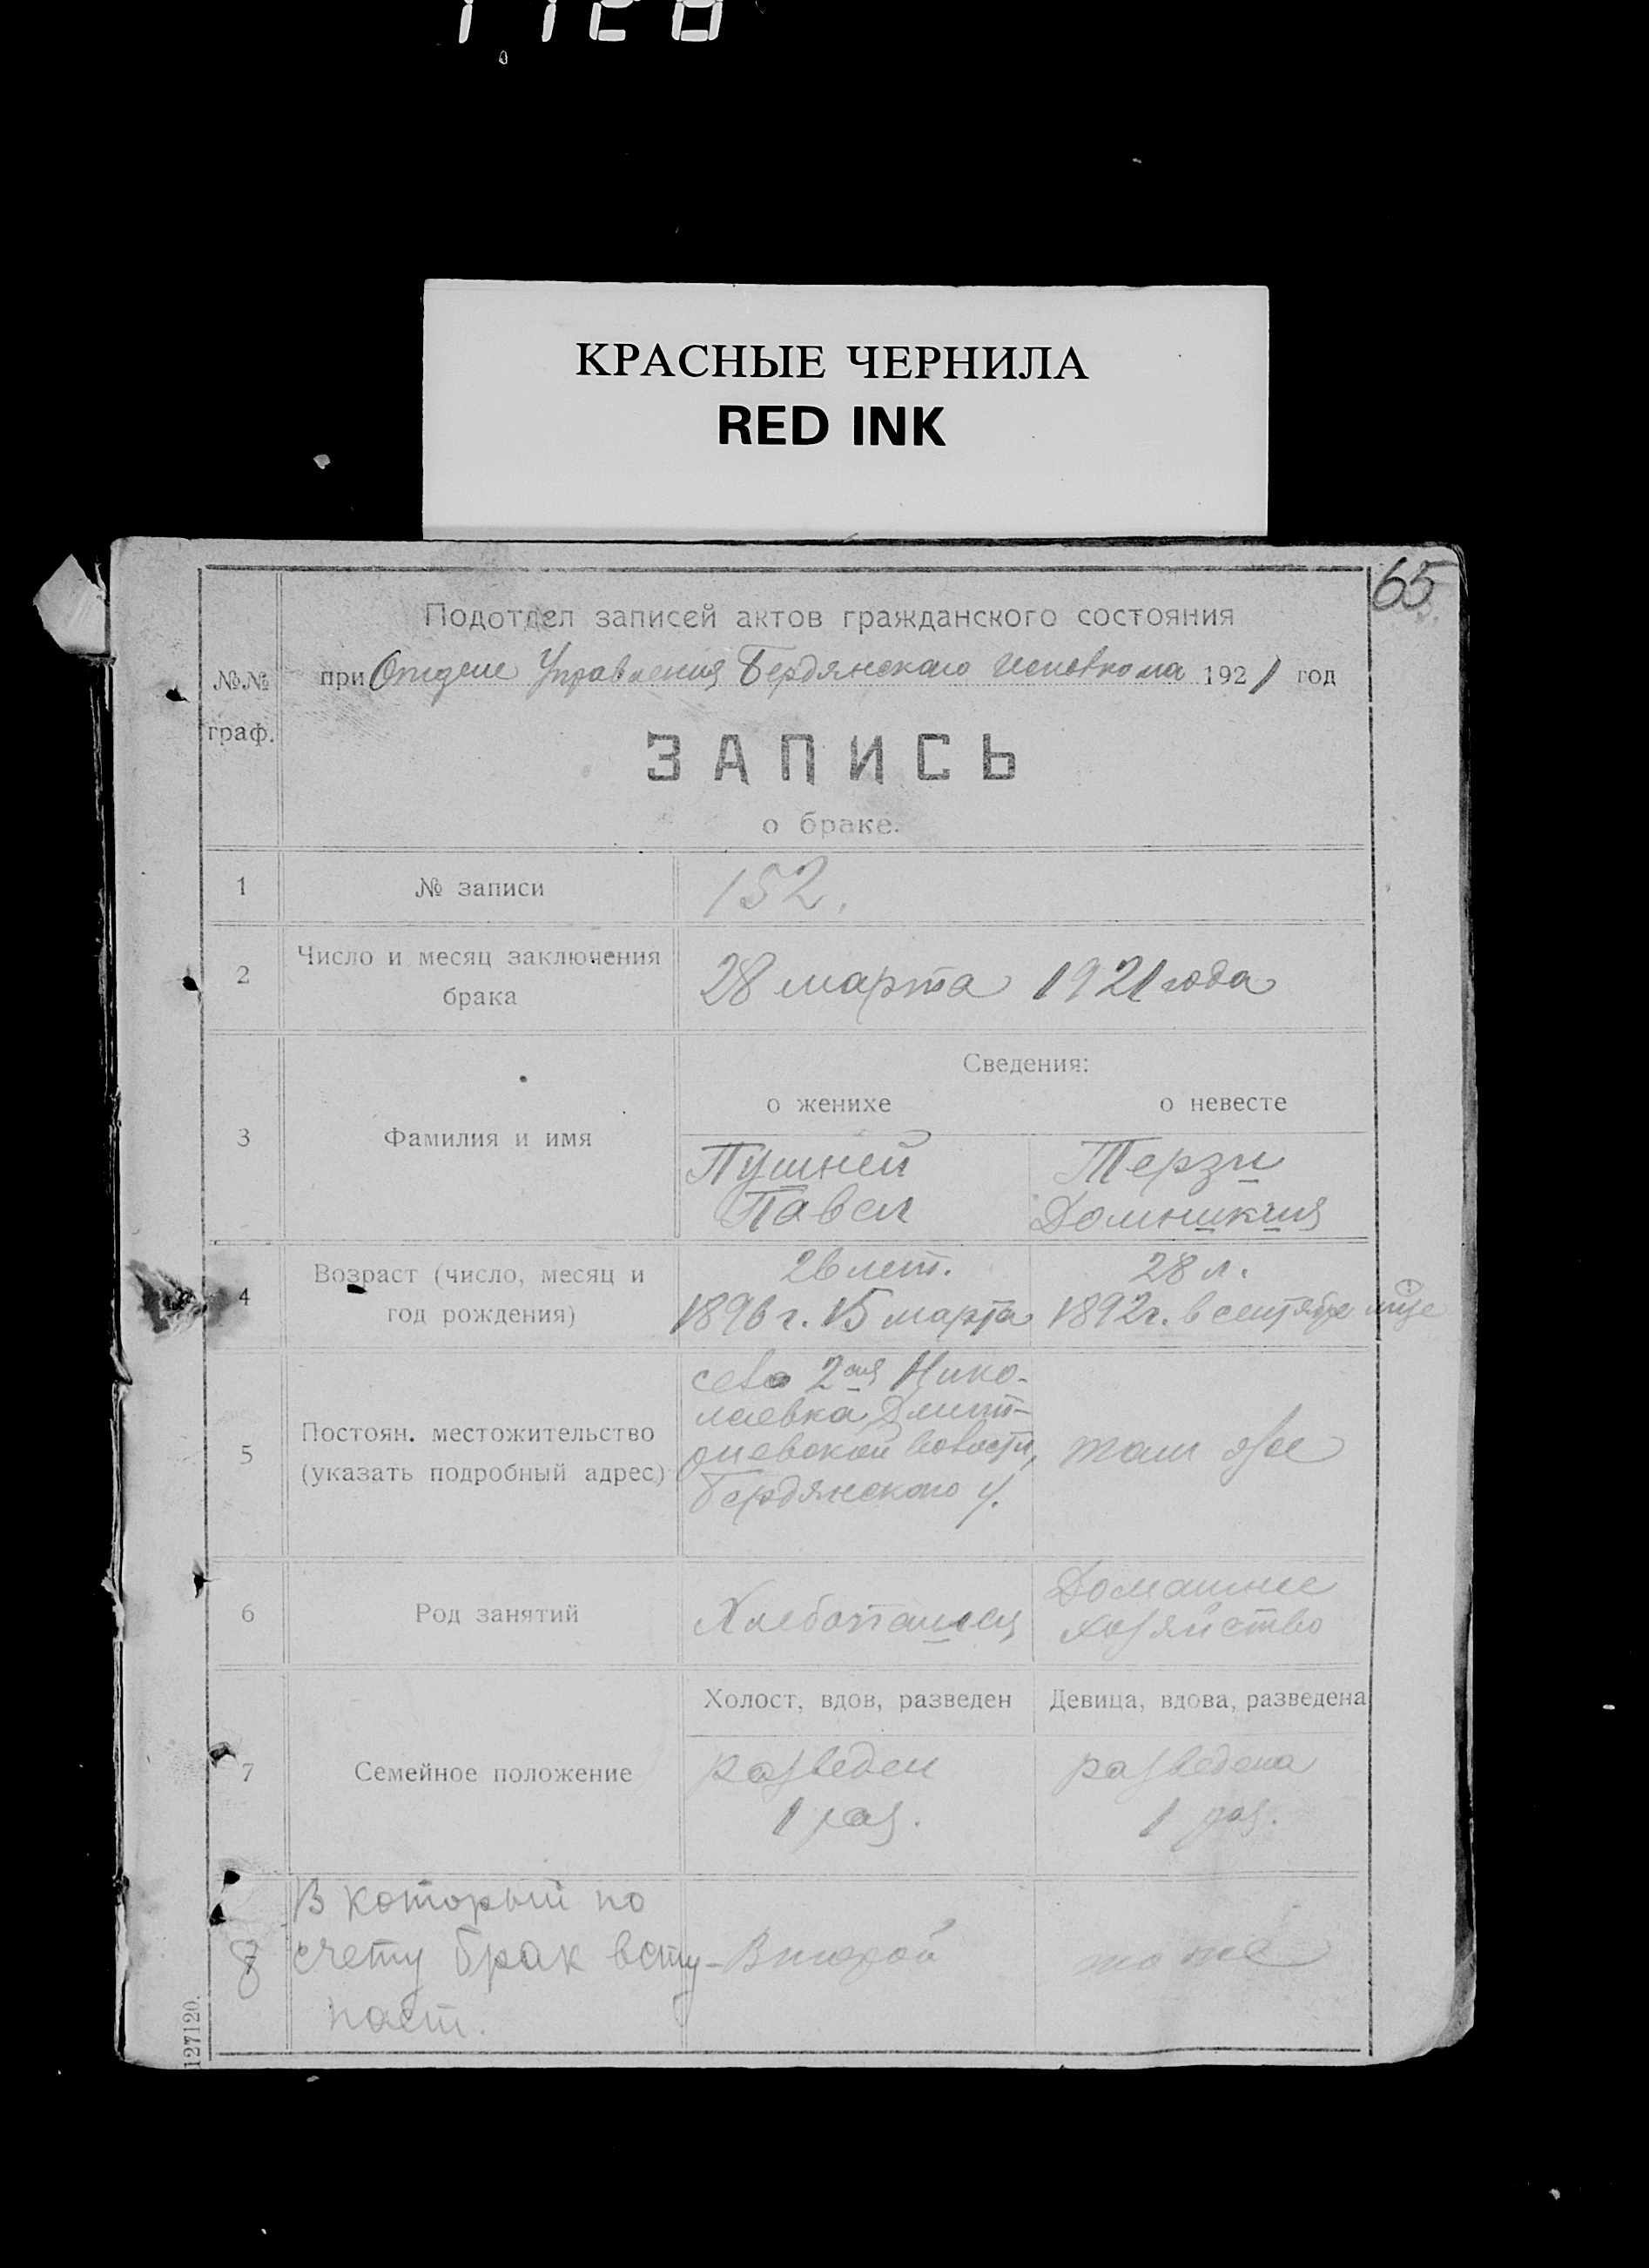 1128
КРАСНЫЕ ЧЕРНИЛА
RED INK
65
Подотдел записей актов гражданского состояния
№№ граф.
при Отделе Управления Бердянского Исповкома 1921 год
ЗАПИСЬ
о браке.
1 № записи 152.
2 Число и месяц заключения брака 28 марта 1921 года
Сведения:
о женихе о невесте
3 Фамилия и имя
Пушней Терзи
Павел Домникия
4 Возраст (число, месяц и год рождения)
26 лет. 28 л.
1896 г. 15 марта 1892 г. в сентябре м-це
5 Постоян. местожительство (указать подробный адрес)
село 2ая Нико-
лаевка Дмит-
риевской волости,
Бердянского у.
там же
6 Род занятий
Хлебопашец
Домашнее
хозяйство
Холост, вдов, разведен Девица, вдова, разведена
7 Семейное положение
разведен разведена
1 раз. 1 раз.
8 В который по
счету брак всту-
пает.
Второй тоже
127120.